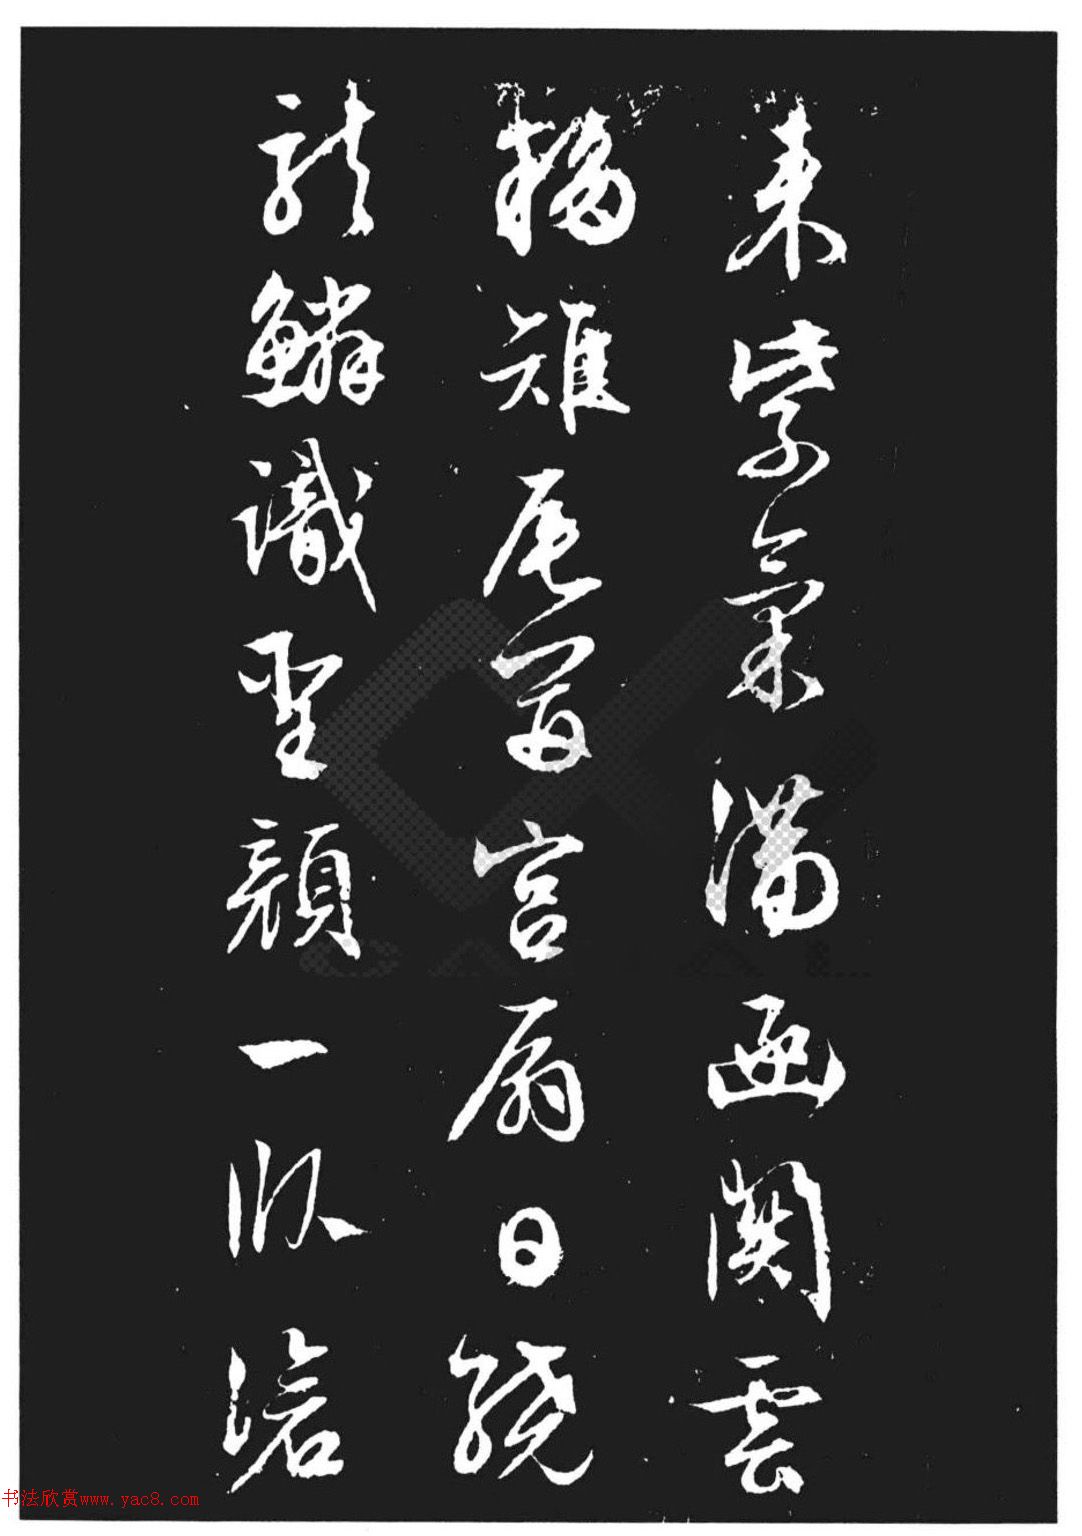 来紫氣滿函関雲
移雉尾開宮扇日繞
龍鱗識聖顏一臥滄
CADAL
书法欣赏www.yac8.com